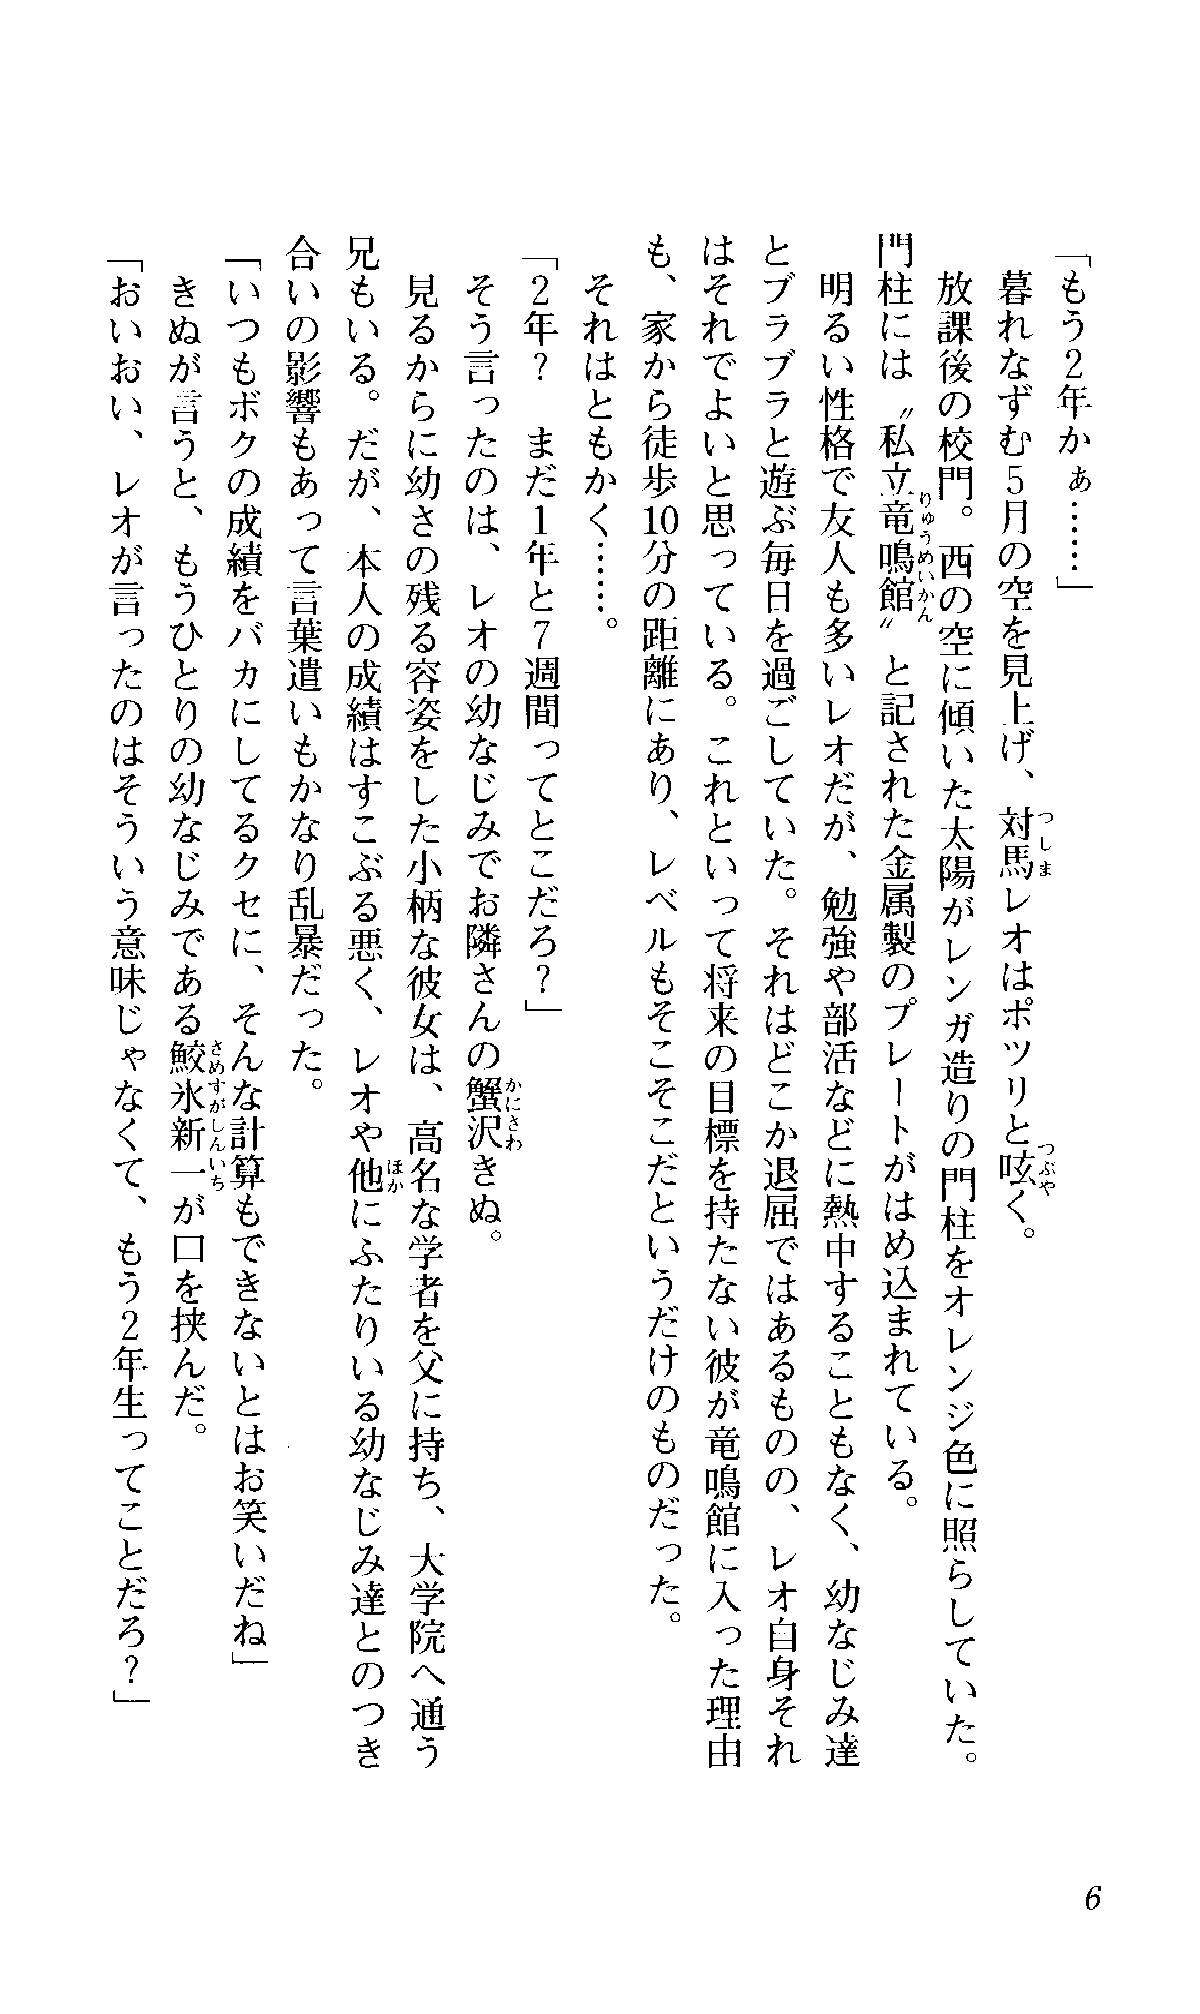 「もう２年かぁ……」
　暮れなずむ５月の空を見上げ、対馬レオはポツリと呟く。
　放課後の校門。西の空に傾いた太陽がレンガ造りの門柱をオレンジ色に照らしていた。
門柱には〝私立竜鳴館〟と記された金属製のプレートがはめ込まれている。
　明るい性格で友人も多いレオだが、勉強や部活などに熱中することもなく、幼なじみ達
とブラブラと遊ぶ毎日を過ごしていた。それはどこか退屈ではあるものの、レオ自身それ
はそれでよいと思っている。これといって将来の目標を持たない彼が竜鳴館に入った理由
も、家から徒歩10分の距離にあり、レベルもそこそこだというだけのものだった。
　それはともかく……。
「２年？　まだ１年と７週間ってとこだろ？」
　そう言ったのは、レオの幼なじみでお隣さんの蟹沢きぬ。
　見るからに幼さの残る容姿をした小柄な彼女は、高名な学者を父に持ち、大学院へ通う
兄もいる。だが、本人の成績はすこぶる悪く、レオや他にふたりいる幼なじみ達とのつき
合いの影響もあって言葉遣いもかなり乱暴だった。
「いつもボクの成績をバカにしてるクセに、そんな計算もできないとはお笑いだね」
　きぬが言うと、もうひとりの幼なじみである鮫氷新一が口を挟んだ。
「おいおい、レオが言ったのはそういう意味じゃなくて、もう２年生ってことだろ？」
6